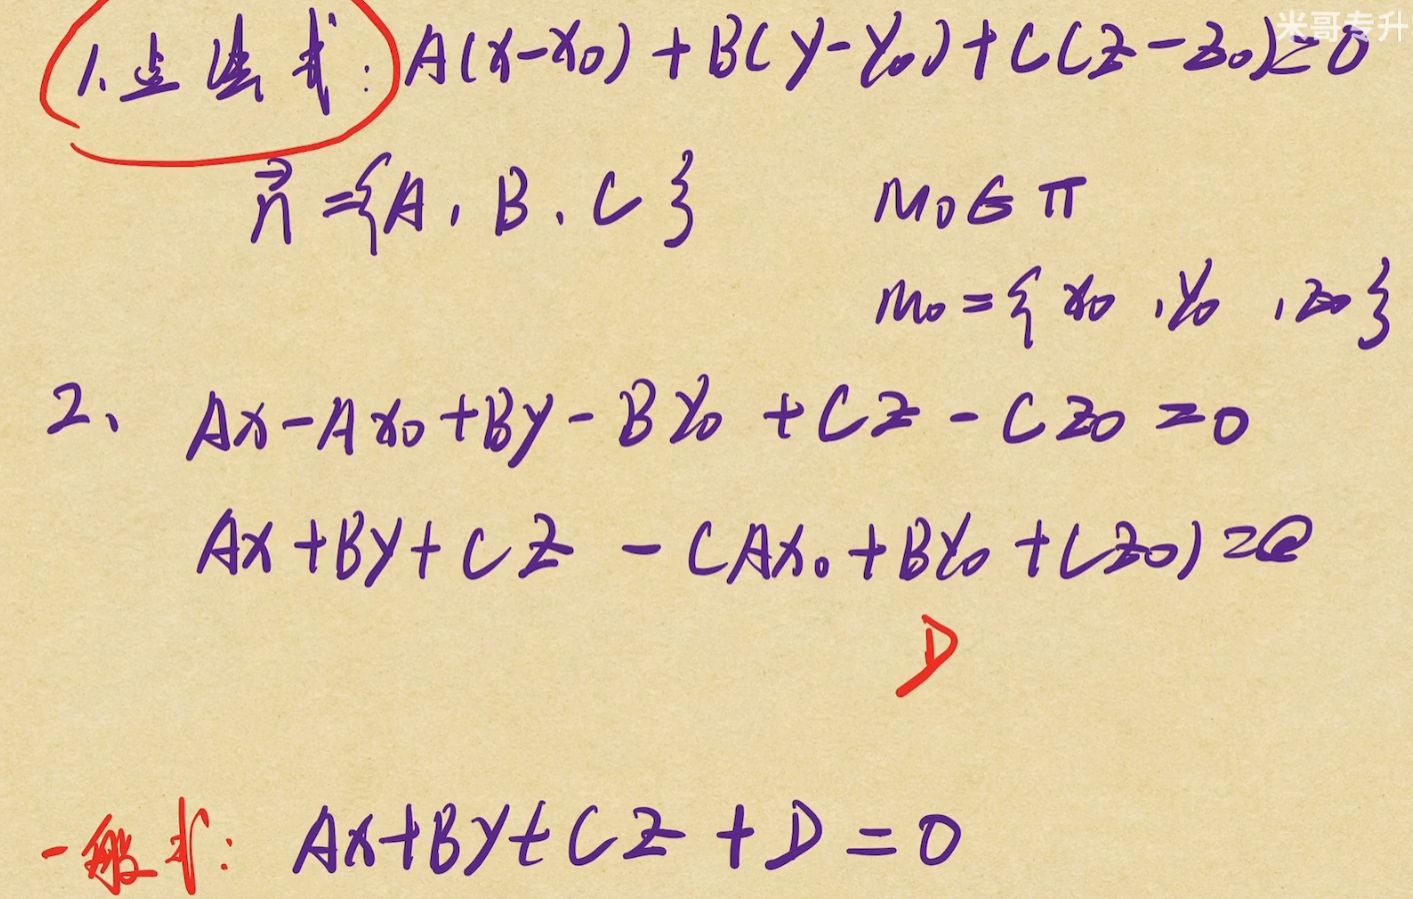 米哥专升
1.点法式: A(x-x₀)+B(y-y₀)+C(z-z₀)=0
n⃗={A,B,C} M₀∈π
M₀={x₀,y₀,z₀}
2、Ax-Ax₀+By-By₀+Cz-Cz₀=0
Ax+By+Cz-(Ax₀+By₀+Cz₀)=0
D
一般式: Ax+By+Cz+D=0